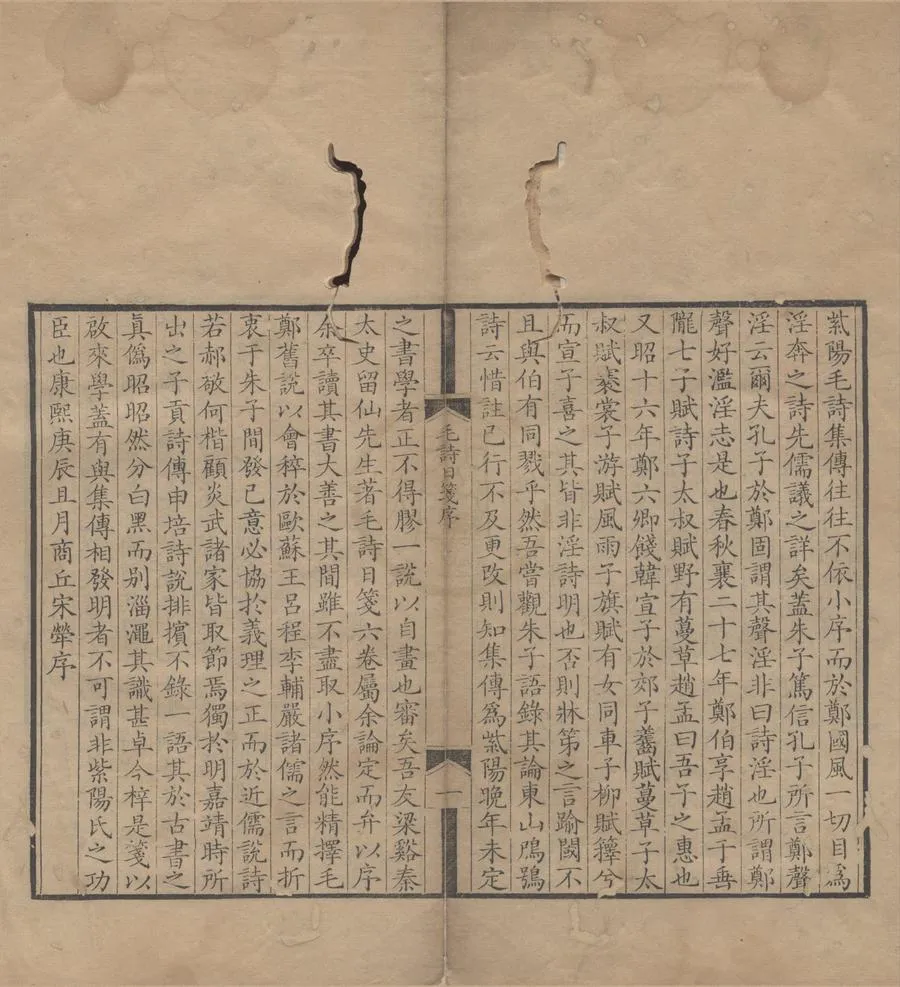 紫陽毛詩集傳往往不依小序而於鄭國風一切目為
淫奔之詩先儒議之詳矣蓋朱子篤信孔子所言鄭聲
淫云爾夫孔子於鄭固謂其聲淫非曰詩淫也所謂鄭
聲好濫淫志是也春秋襄二十七年鄭伯享趙孟于垂
隴七子賦詩子太叔賦野有蔓草趙孟曰吾子之惠也
又昭十六年鄭六卿餞韓宣子於郊子齹賦蔓草子太
叔賦褰裳子游賦風雨子旗賦有女同車子柳賦蘀兮
而宣子喜之其皆非淫詩明也否則牀第之言踰閾不
且與伯有同戮乎然吾嘗觀朱子語錄其論東山鴟鴞
詩云惜註已行不及更改則知集傳為紫陽晚年未定
毛詩日箋序
一
之書學者正不得膠一說以自畫也審矣吾友梁谿秦
太史留仙先生著毛詩日箋六卷屬余論定而弁以序
余卒讀其書大善之其間雖不盡取小序然能精擇毛
鄭舊說以會稡於歐蘇王呂程李輔嚴諸儒之言而折
衷于朱子間發己意必協於義理之正而於近儒說詩
若郝敬何楷顧炎武諸家皆取節焉獨於明嘉靖時所
出之子貢詩傳申培詩說排擯不錄一語其於古書之
真偽昭昭然分白黑而別淄澠其識甚卓今梓是箋以
啟來學蓋有與集傳相發明者不可謂非紫陽氏之功
臣也康熙庚辰且月商丘宋犖序